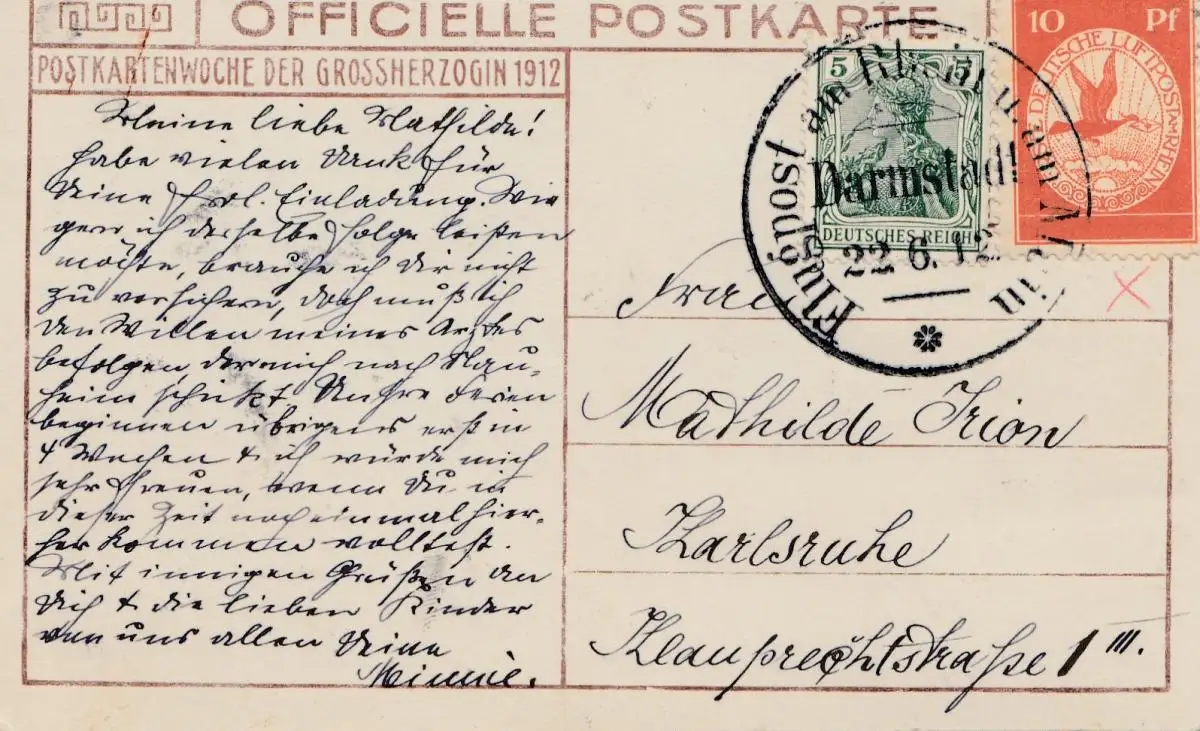 OFFICIELLE POSTKARTE
POSTKARTENWOCHE DER GROSSHERZOGIN 1912
Meine liebe Mathilde!
habe vielen Dank für
Deine frdl. Einladung. Wie
gern ich derselbe folge leisten
möchte, brauche ich Dir nicht
zu versichern, doch muß ich
den Willen meines Arztes
befolgen, der mich nach Nau-
heim schickt. Unsre Ferien
beginnen übrigens erst in
4 Wochen & ich würde mich
sehr freuen, wenn Du in
dieser Zeit noch einmal hier-
her kommen wolltest.
Mit innigen Grüßen an
Dich & die lieben Kinder
von uns allen Deine
Minnie.
5 5
DEUTSCHES REICH
10 Pf
DEUTSCHE LUFTPOST AM RHEIN
Flugpost am Rhein u. am Main
Darmstadt
22 6. 12
Frau
Mathilde Irion
Karlsruhe
Klauprechtstraße 1 III.